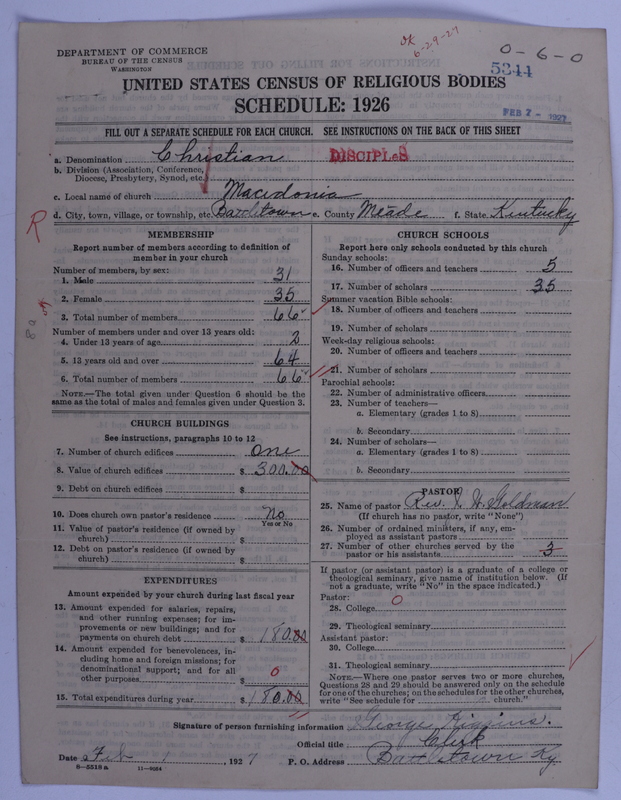 OK
6-29-27
0-6-0
DEPARTMENT OF COMMERCE
BUREAU OF THE CENSUS
WASHINGTON
5344
UNITED STATES CENSUS OF RELIGIOUS BODIES
SCHEDULE: 1926
FEB 7 - 1927
FILL OUT A SEPARATE SCHEDULE FOR EACH CHURCH. SEE INSTRUCTIONS ON THE BACK OF THIS SHEET
a. Denomination Christian DISCIPLES
b. Division (Association, Conference, Diocese, Presbytery, Synod, etc.)
c. Local name of church Macidonia
d. City, town, village, or township, etc. Battletown e. County Meade f. State Kentucky
R
MEMBERSHIP
Report number of members according to definition of member in your church
Number of members, by sex:
1. Male 31
2. Female 35
3. Total number of members 66
Number of members under and over 13 years old:
4. Under 13 years of age 2
5. 13 years old and over 64
6. Total number of members 66
NOTE.—The total given under Question 6 should be the same as the total of males and females given under Question 3.
CHURCH BUILDINGS
See instructions, paragraphs 10 to 12
7. Number of church edifices One
8. Value of church edifices $ 300.00
9. Debt on church edifices $
10. Does church own pastor's residence No
Yes or No
11. Value of pastor's residence (if owned by church) $
12. Debt on pastor's residence (if owned by church) $
EXPENDITURES
Amount expended by your church during last fiscal year
13. Amount expended for salaries, repairs, and other running expenses; for improvements or new buildings; and for payments on church debt $ 180.00
14. Amount expended for benevolences, including home and foreign missions; for denominational support; and for all other purposes $ 0
15. Total expenditures during year $ 180.00
CHURCH SCHOOLS
Report here only schools conducted by this church
Sunday schools:
16. Number of officers and teachers 5
17. Number of scholars 35
Summer vacation Bible schools:
18. Number of officers and teachers
19. Number of scholars
Week-day religious schools:
20. Number of officers and teachers
21. Number of scholars
Parochial schools:
22. Number of administrative officers
23. Number of teachers—
a. Elementary (grades 1 to 8)
b. Secondary
24. Number of scholars—
a. Elementary (grades 1 to 8)
b. Secondary
PASTOR
25. Name of pastor Rev. I. H. Goldman
(If church has no pastor, write "None")
26. Number of ordained ministers, if any, employed as assistant pastors
27. Number of other churches served by the pastor or his assistants 3
If pastor (or assistant pastor) is a graduate of a college or theological seminary, give name of institution below. (If not a graduate, write "No" in the space indicated.)
Pastor: 0
28. College
29. Theological seminary
Assistant pastor:
30. College
31. Theological seminary
NOTE.—Where one pastor serves two or more churches, Questions 28 and 29 should be answered only on the schedule for one of the churches; on the schedules for the other churches, write "See schedule for church."
Signature of person furnishing information George Higgins.
Official title Clerk
Date Feb 1, 1927 P. O. Address Battletown Ky.
8—5518 a 11—9064